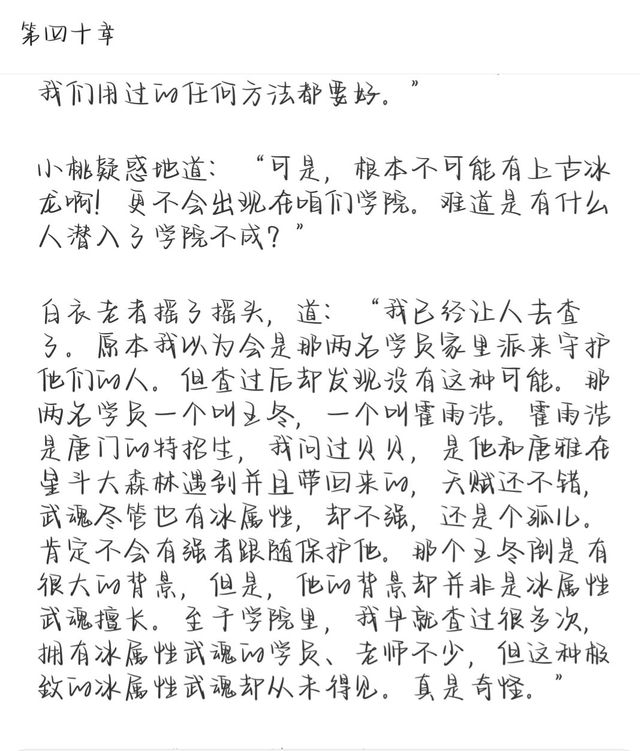 第四十章
我们用过的任何方法都要好。”
小桃疑惑地道：“可是，根本不可能有上古冰
龙啊！更不会出现在咱们学院。难道是有什么
人潜入了学院不成？”
白衣老者摇了摇头，道：“我已经让人去查
了。原本我以为会是那两名学员家里派来守护
他们的人。但查过后却发现没有这种可能。那
两名学员一个叫王冬，一个叫霍雨浩。霍雨浩
是唐门的特招生，我问过贝贝，是他和唐雅在
星斗大森林遇到并且带回来的，天赋还不错，
武魂尽管也有冰属性，却不强，还是个孤儿。
肯定不会有强者跟随保护他。那个王冬倒是有
很大的背景，但是，他的背景却并非是冰属性
武魂擅长。至于学院里，我早就查过很多次，
拥有冰属性武魂的学员、老师不少，但这种极
致的冰属性武魂却从未得见。真是奇怪。”